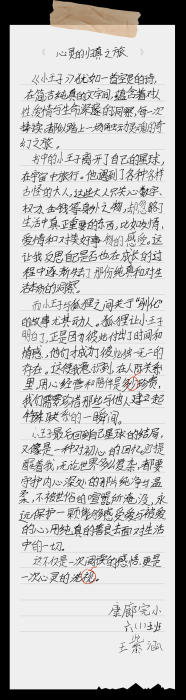 《心灵的归真之旅》
《小王子》犹如一首空灵的诗，
在简洁纯真的文字里，蕴含着对人
性爱情与生命深邃的洞察，每一次
捧读，都似踏上一场回归灵魂的奇
幻之旅。
书中的小王子离开了自己的星球，
在宇宙中旅行。他遇到了各种各样
古怪的大人，这些大人只关心数字、
权力、金钱等身外之物，却忽略了
生活中真正重要的东西，比如友情，
爱情和对美好事物的感受。这
让我反思自己是否也在成长的过
程中逐渐失去了那份纯真和对生
活本质的洞察。
而小王子与狐狸之间关于“驯化”
的故事尤其动人。狐狸让小王子
明白了，正是因为彼此付出了时间和
情感，他们才成为了彼此独一无二的
存在。这使我意识到，在人际关系
里，用心经营和陪伴是多么珍贵，
我们需要珍惜那些与他人建立起
特殊联系的一瞬间。
小王子最后回到自己星球的结局，
又像是一种对初心的回归，它提
醒着我，无论世界多么复杂，都要
守护内心深处的那份纯净与温
柔，不被世俗的喧嚣所淹没，永
远保护一颗能够感受爱与被爱
的心，用纯真的善良去面对生活
中的一切。
这不仅是一次阅读的感悟，更是
一次心灵的洗礼。
唐郢完小
六(1)班
王紫涵